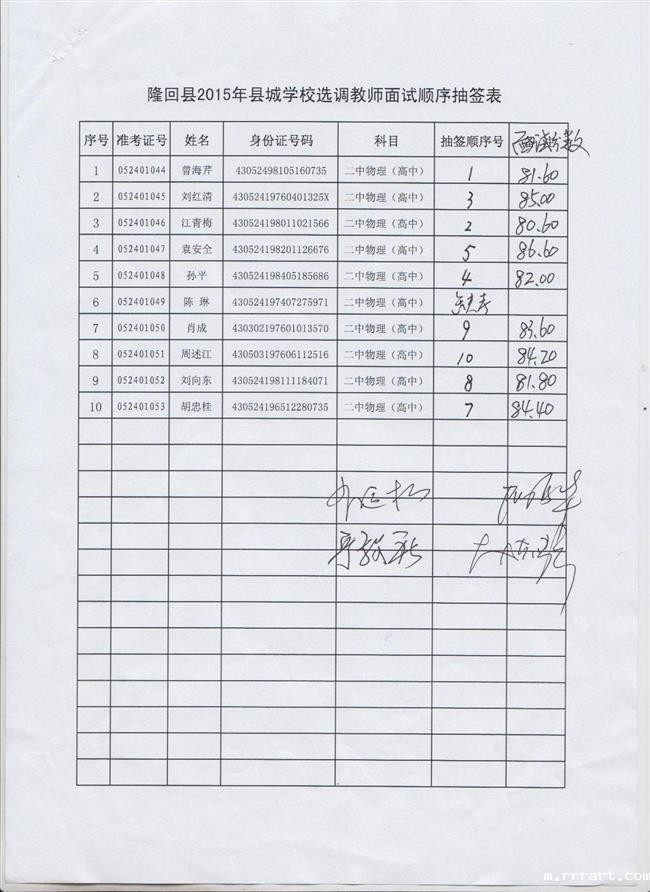 隆回县2015年县城学校选调教师面试顺序抽签表
序号 准考证号 姓名 身份证号码 科目 抽签顺序号 面试分数
1 052401044 曾海芹 43052498105160735 二中物理（高中） 1 81.60
2 052401045 刘红清 43052419760401325X 二中物理（高中） 3 85.00
3 052401046 江青梅 430524198011021566 二中物理（高中） 2 80.60
4 052401047 袁安全 430524198201126676 二中物理（高中） 5 86.60
5 052401048 孙平 430524198405185686 二中物理（高中） 4 82.00
6 052401049 陈 琳 430524197407275971 二中物理（高中）
7 052401050 肖成 430302197601013570 二中物理（高中） 9 83.60
8 052401051 周述江 430503197606112516 二中物理（高中） 10 84.20
9 052401052 刘向东 430524198111184071 二中物理（高中） 8 81.80
10 052401053 胡忠桂 430524196512280735 二中物理（高中） 7 84.40
m.rrrart.com